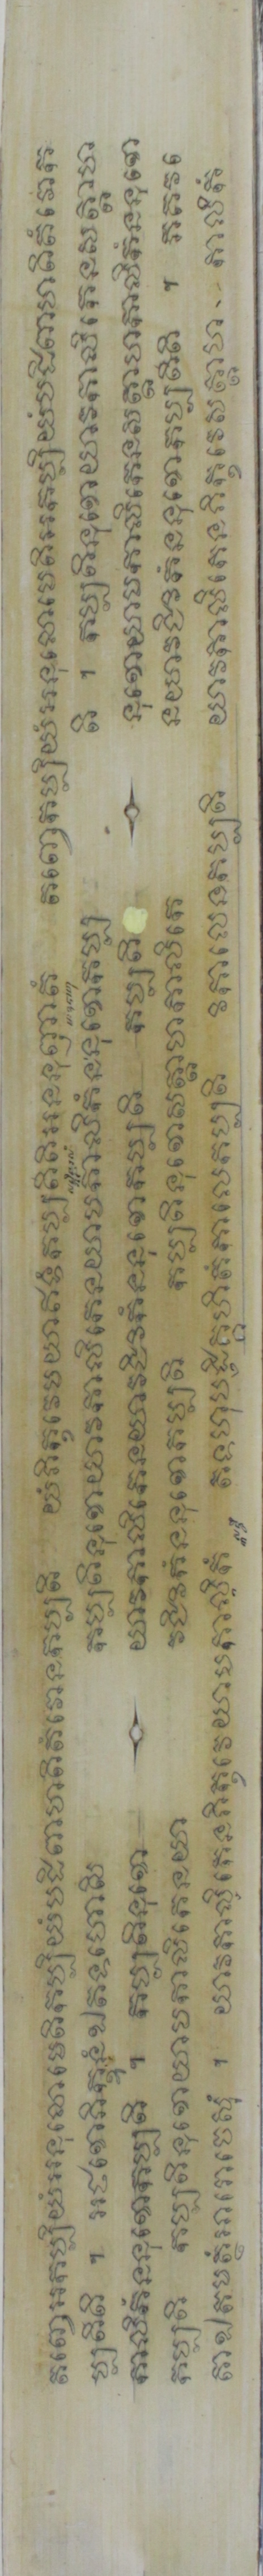 តញ្ចេអកប្បិយំអនុលោមេតិកប្បិយំបដិពាហតិតំវោនកប្បតិ យំភិក្ខវេមយាឥទំកប្បតីតិអននុញ្ញាតំ តញ្ចេកប្បិយំអនុលោមេតិអកប្បិយំបដិពាហតិតំវោក
ប្បតីតិ ។ អថខោភិក្ខូនំឯតទហោសិ កប្បតិនុខោយាវកាលិកេនយាមកាលិកំននុខោកប្ប តិ ។ កប្បតិនុខោយាវកាលិកេនសត្តាហ
កាលិកំននុខោកប្បតិ ។ កប្បតិនុខោ យាវកាលិកេនយាវជីវិកំននុខោកប្បតិ កប្បតិ នុខោយាមកាលិកេនសត្តាហកាលិកំននុខោ
កប្បតិ កប្បតិនុខោយាមកាលិកេនយា វជីវិកំននុខោកប្បតិ កប្បតិនុខោសត្តាហកាលិកេ នយាវជីវិកំននុខោកប្បតីតិ ។ ភគវ
តោឯតមត្ថំអារោចេសុំ ។ យាវកាលិកេនភិក្ខវេយាមកាលិកំ តទហុបដិគ្គហិតំកាលេកប្បតិ វិកាលេនកប្បតិ យាវកាលិកេនភិក្ខវេសត្តាហ កាលិកំ